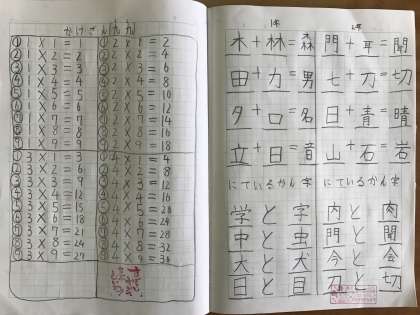 かけざん九九
① 1 × 1 = 1 ① 2 × 1 = 2
② 1 × 2 = 2 ② 2 × 2 = 4
③ 1 × 3 = 3 ③ 2 × 3 = 6
④ 1 × 4 = 4 ④ 2 × 4 = 8
⑤ 1 × 5 = 5 ⑤ 2 × 5 = 10
⑥ 1 × 6 = 6 ⑥ 2 × 6 = 12
⑦ 1 × 7 = 7 ⑦ 2 × 7 = 14
⑧ 1 × 8 = 8 ⑧ 2 × 8 = 16
⑨ 1 × 9 = 9 ⑨ 2 × 9 = 18
① 3 × 1 = 3 ① 4 × 1 = 4
② 3 × 2 = 6 ② 4 × 2 = 8
③ 3 × 3 = 9 ③ 4 × 3 = 12
④ 3 × 4 = 12 ④ 4 × 4 = 16
⑤ 3 × 5 = 15 ⑤ 4 × 5 = 20
⑥ 3 × 6 = 18 ⑥ 4 × 6 = 24
⑦ 3 × 7 = 21 ⑦ 4 × 7 = 28
⑧ 3 × 8 = 24 ⑧ 4 × 8 = 32
⑨ 3 × 9 = 27 ⑨ 4 × 9 = 36
1年 2年
木+林=森 門+耳=聞
田+力=男 七+刀=切
夕+口=名 日+青=晴
立+日=音 山+石=岩
にているかん字 にているかん字
学と字 内と肉
中と虫 門と聞
大と犬 今と会
日と目 刀と切